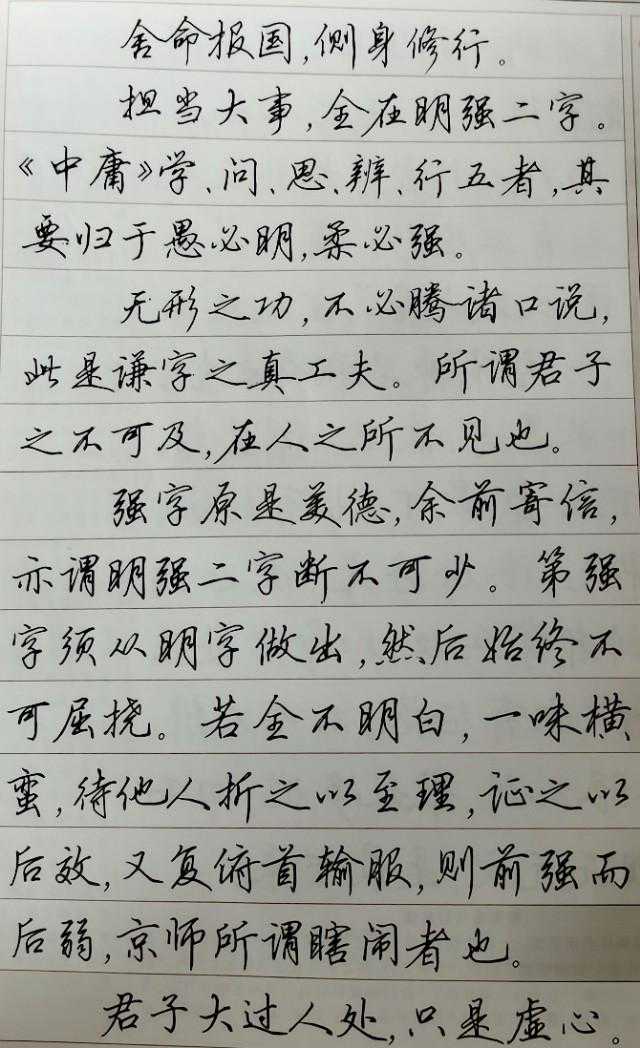 舍命报国,侧身修行。
担当大事,全在明强二字。
《中庸》学、问、思、辨、行五者,其
要归于愚必明,柔必强。
无形之功,不必腾诸口说,
此是谦字之真工夫。所谓君子
之不可及,在人之所不见也。
强字原是美德,余前寄信,
亦谓明强二字断不可少。第强
字须从明字做出,然后始终不
可屈挠。若全不明白,一味横
蛮,待他人折之以至理,证之以
后效,又复俯首输服,则前强而
后弱,京师所谓瞎闹者也。
君子大过人处,只是虚心。